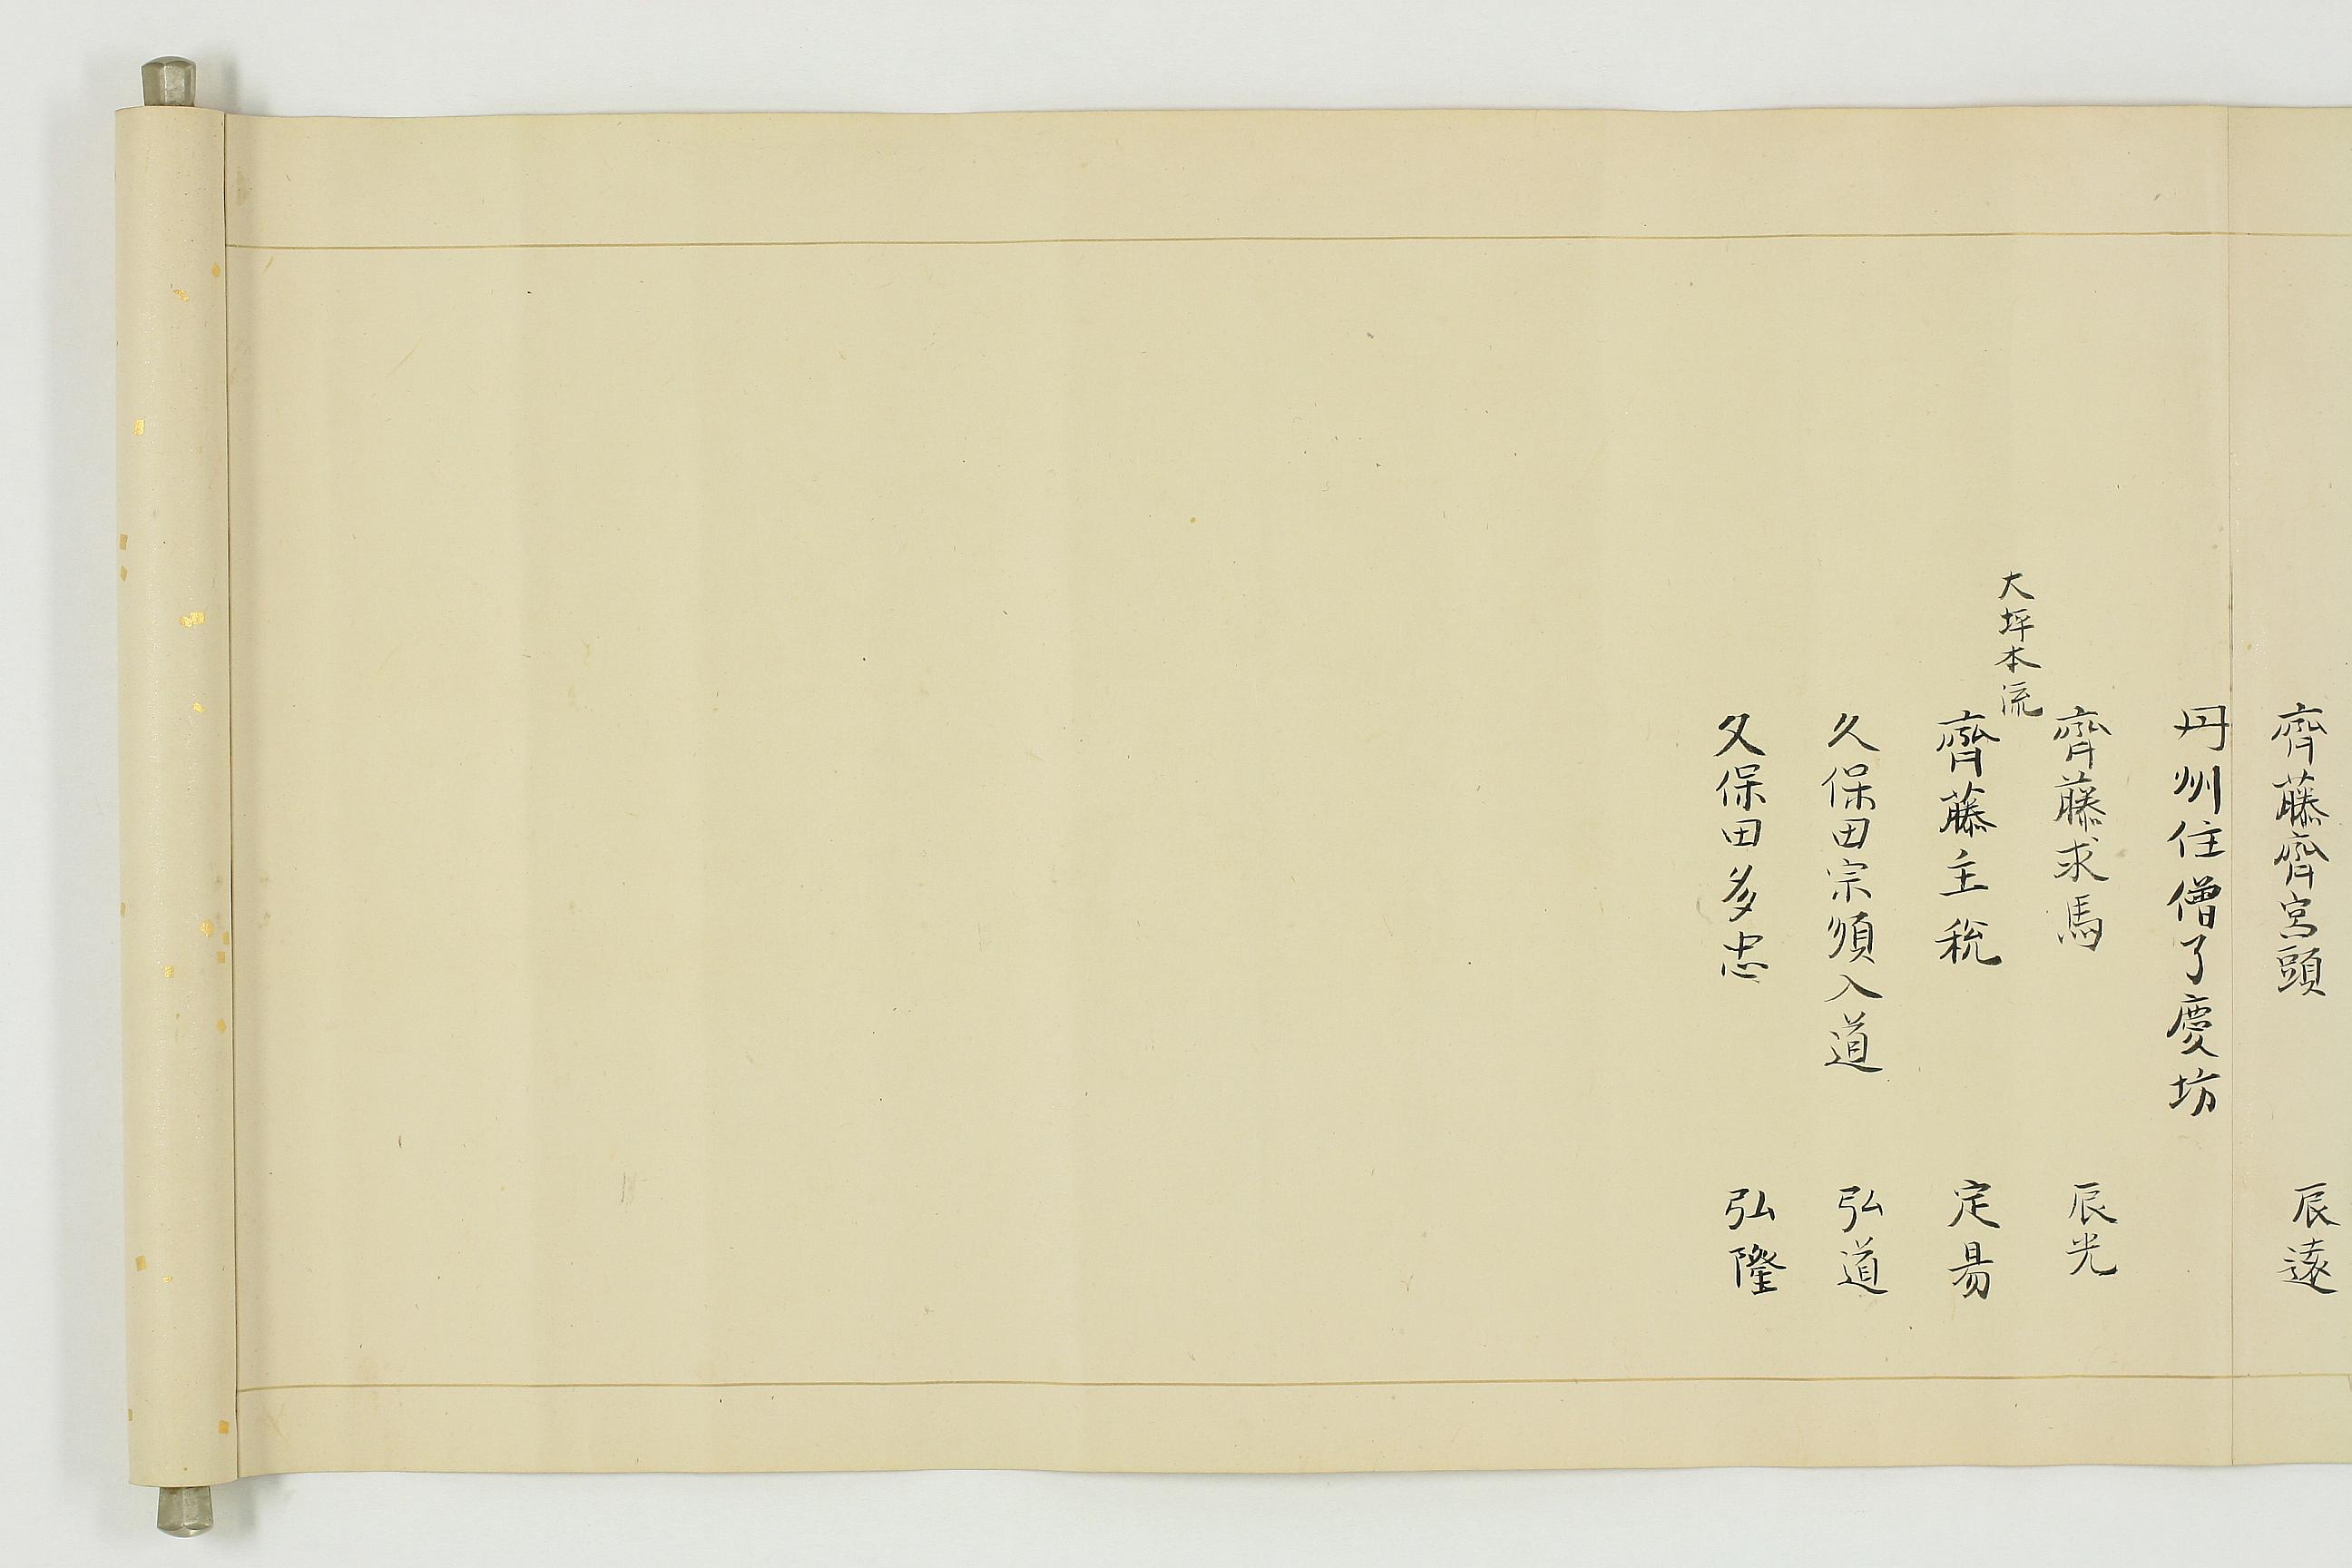 齊藤齊宮頭 辰遠
丹州住僧了慶坊
齊藤求馬 辰光
大坪本流
齊藤主税 定易
久保田宗須入道 弘道
久保田多忠 弘隆